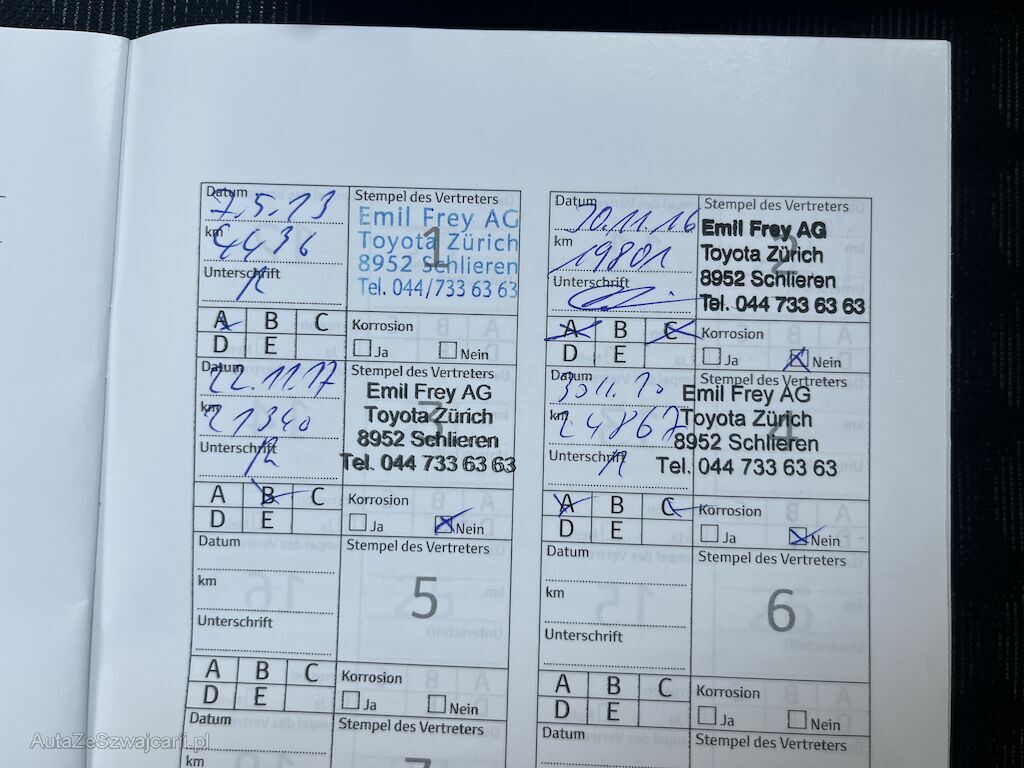 Datum
7.5.13
km
4436
Unterschrift
Stempel des Vertreters
1
Emil Frey AG
Toyota Zürich
8952 Schlieren
Tel. 044/733 63 63
A B C
D E
Korrosion
Ja Nein
Datum
30.11.16
km
19801
Unterschrift
Stempel des Vertreters
2
Emil Frey AG
Toyota Zürich
8952 Schlieren
Tel. 044 733 63 63
A B C
D E
Korrosion
Ja Nein
Datum
22.11.17
km
21340
Unterschrift
Stempel des Vertreters
3
Emil Frey AG
Toyota Zürich
8952 Schlieren
Tel. 044 733 63 63
A B C
D E
Korrosion
Ja Nein
Datum
km
24867
Unterschrift
Stempel des Vertreters
4
Emil Frey AG
Toyota Zürich
8952 Schlieren
Tel. 044 733 63 63
A B C
D E
Korrosion
Ja Nein
Datum
km
Unterschrift
Stempel des Vertreters
5
A B C
D E
Korrosion
Ja Nein
Datum
km
Unterschrift
Stempel des Vertreters
6
A B C
D E
Korrosion
Ja Nein
Datum
km
Stempel des Vertreters
7
Datum
Stempel des Vertreters
AutaZeSzwajcarii.pl